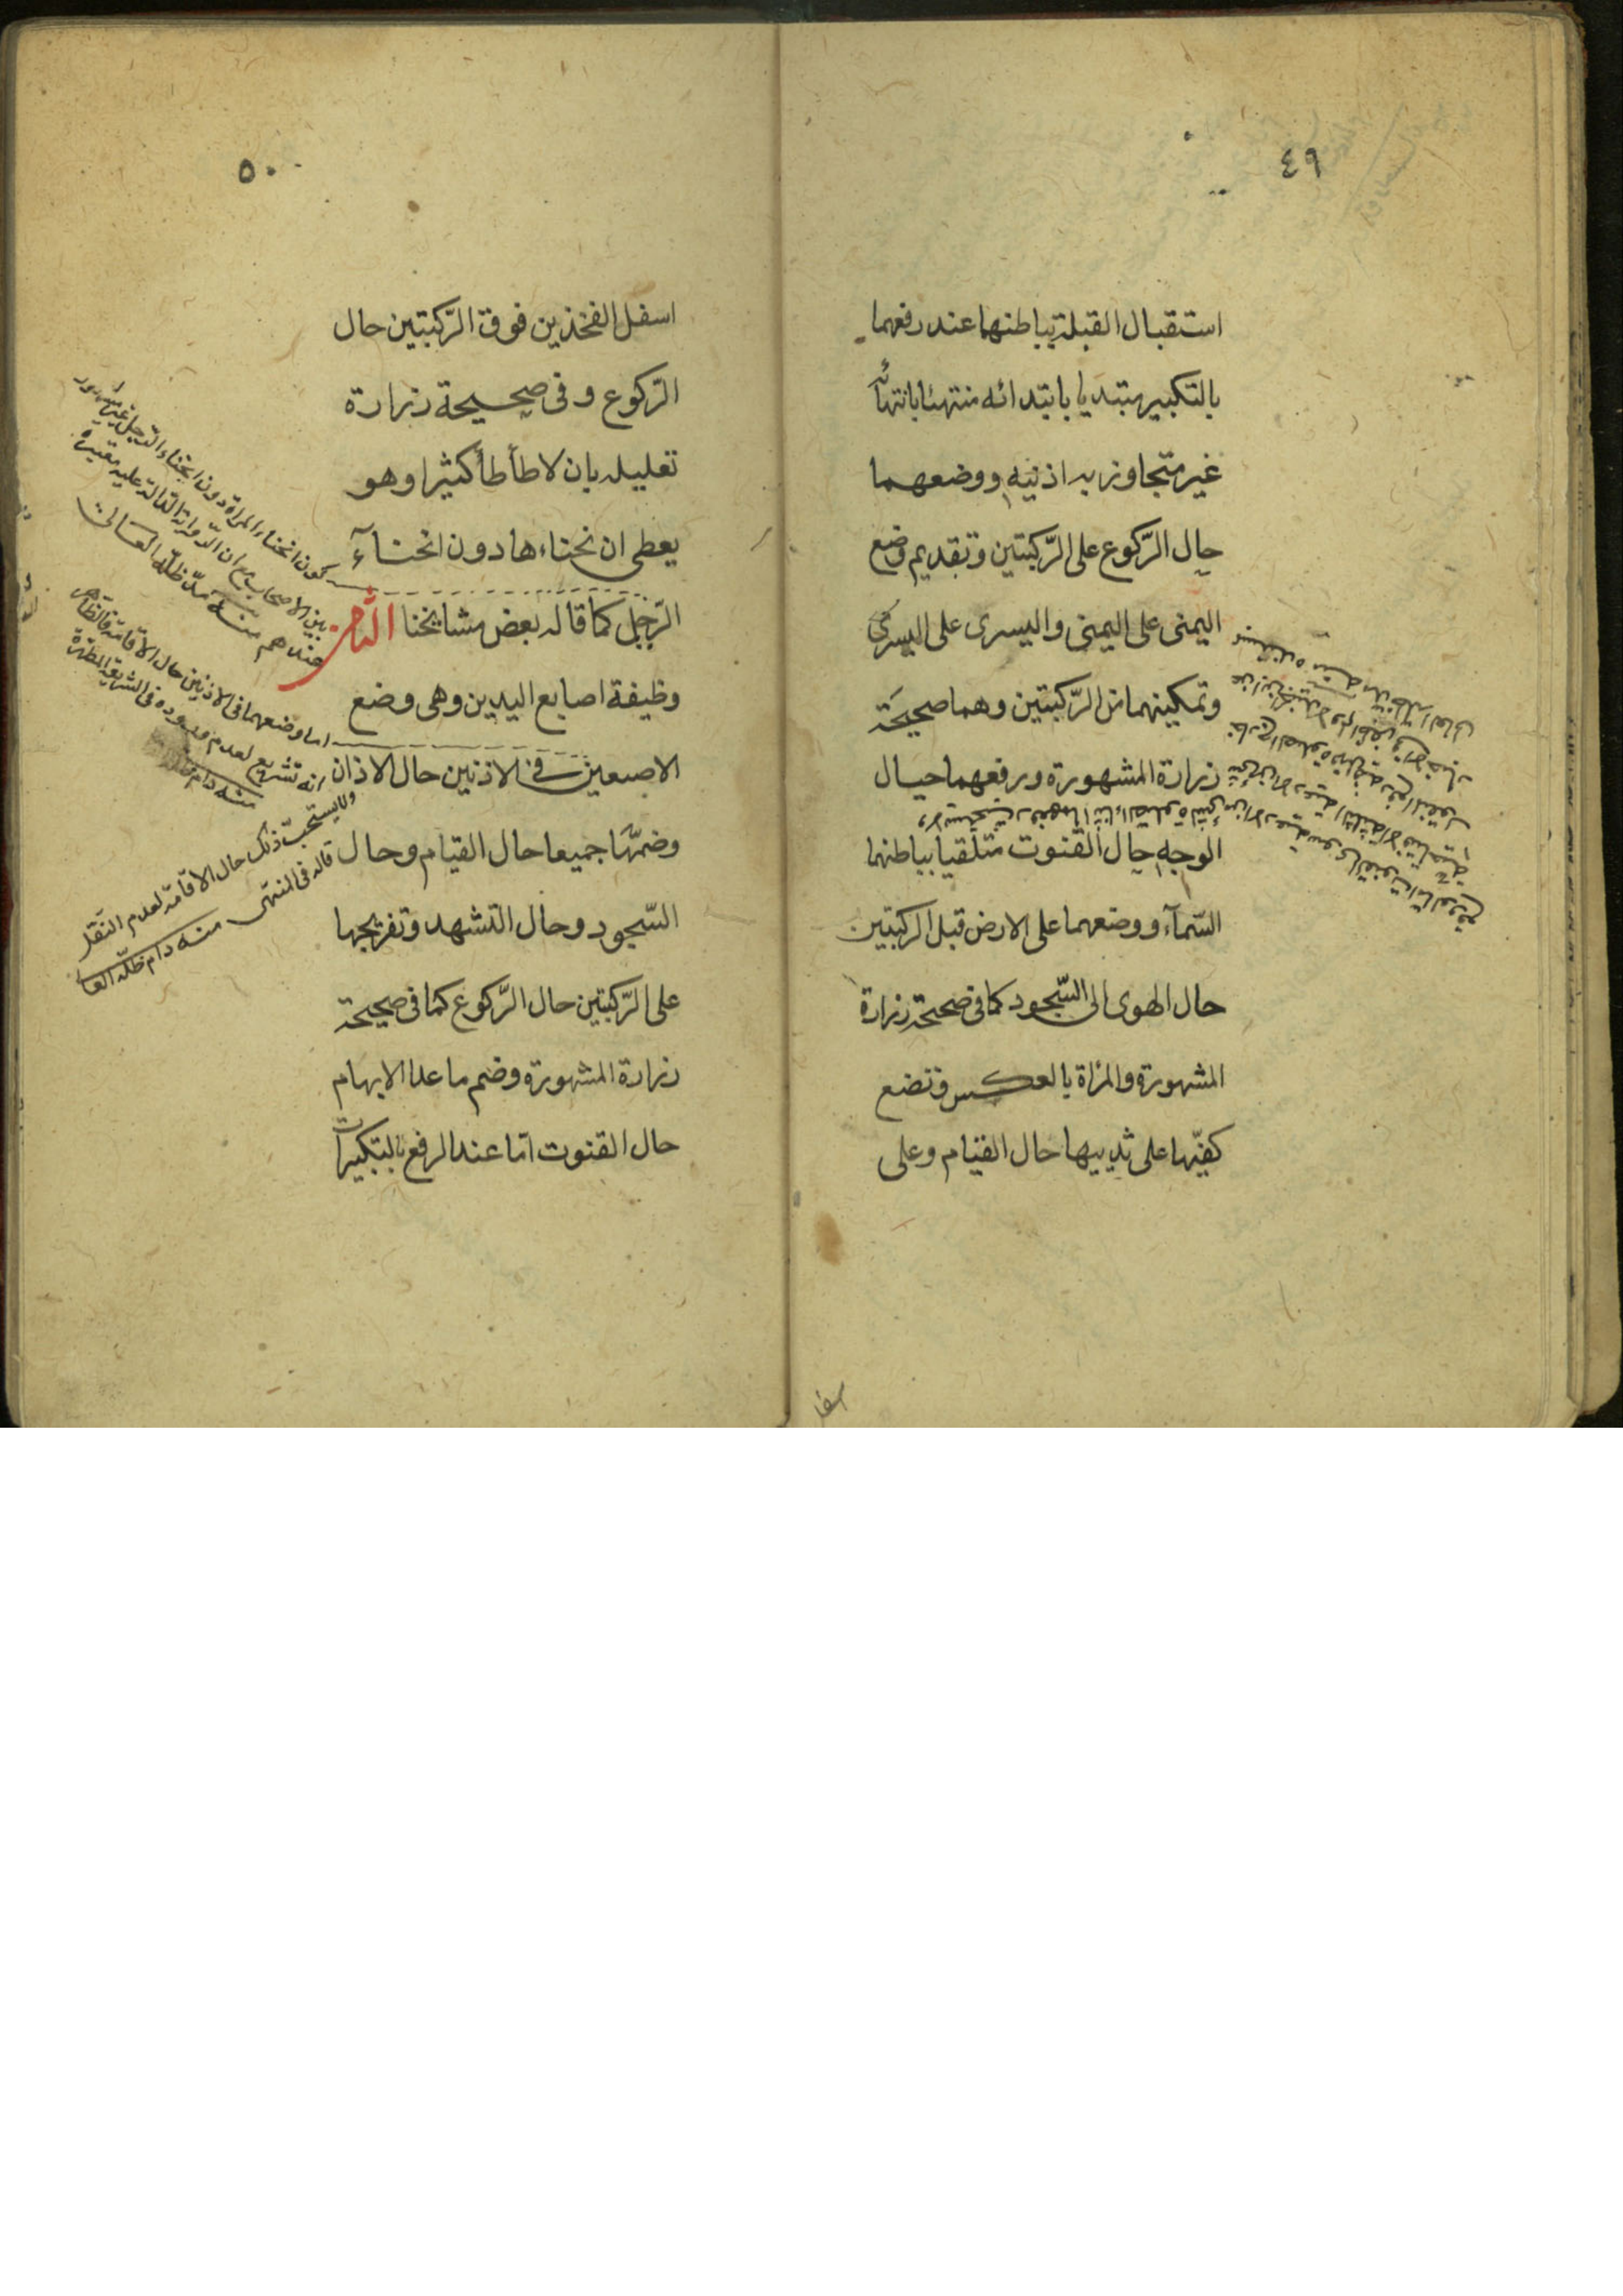 ٤٩
استقبال القبلة بباطنهما عند رفعهما
بالتكبير مبتديا بابتدائه منتهئا بانتهائه
غير متجاوز بهـ اذنيه ووضعهما
حال الرّكوع على الرّكبتين وتقديم وضع
اليمنى على اليمنى واليسرى على اليسرى
وتمكينهما من الرّكبتين وهما صحيحة
زرارة المشهورة ورفعهما حيال
الوجه حال القنوت متلقيا بباطنهما
السّمآء ووضعهما على الارض قبل الركبتين
حال الهوى الى السّجود كما فى صحيحة زرارة
المشهورة والمرٔاة بالعكس وتضع
كفيّها على ثدييها حال القيام وعلى
٥٠
اسفل الفخذين فوق الرّكبتين حال
الرّكوع وفى صحيحة زرارة
تعليله بان لا تطأطأ كثيرا وهو
يعطى ان نحناءها دون انحنآء
الرّجل كما قاله بعض مشايخنا الثامن
وظيفة اصابع اليدين وهى وضع
الاصبعين فى الاذنين حال الاذان
وضمّها جميعا حال القيام وحال
السّجود وحال التشهد وتفريجها
على الرّكبتين حال الرّكوع كما فى صحيحة
زرارة المشهورة وضم ما عدا الابهام
حال القنوت امّا عند الرفع بالتكبيرات
كون انحناء المراة دون انحناء الرجل غير مشهور
بين الاصحاب مع ان الرواية الدالة عليه معتبرة
عندهم منه مدّ ظلّه العالى
اما وضعهما فى الاذنين حال الاقامة فالظاهر
انه تشريع لعدم وروده فى الشريعة المطهرة
منه دام
ولا يستحبّ ذلك حال الاقامة لعدم النقل
قاله فى المنتهى منه دام ظلّه العا